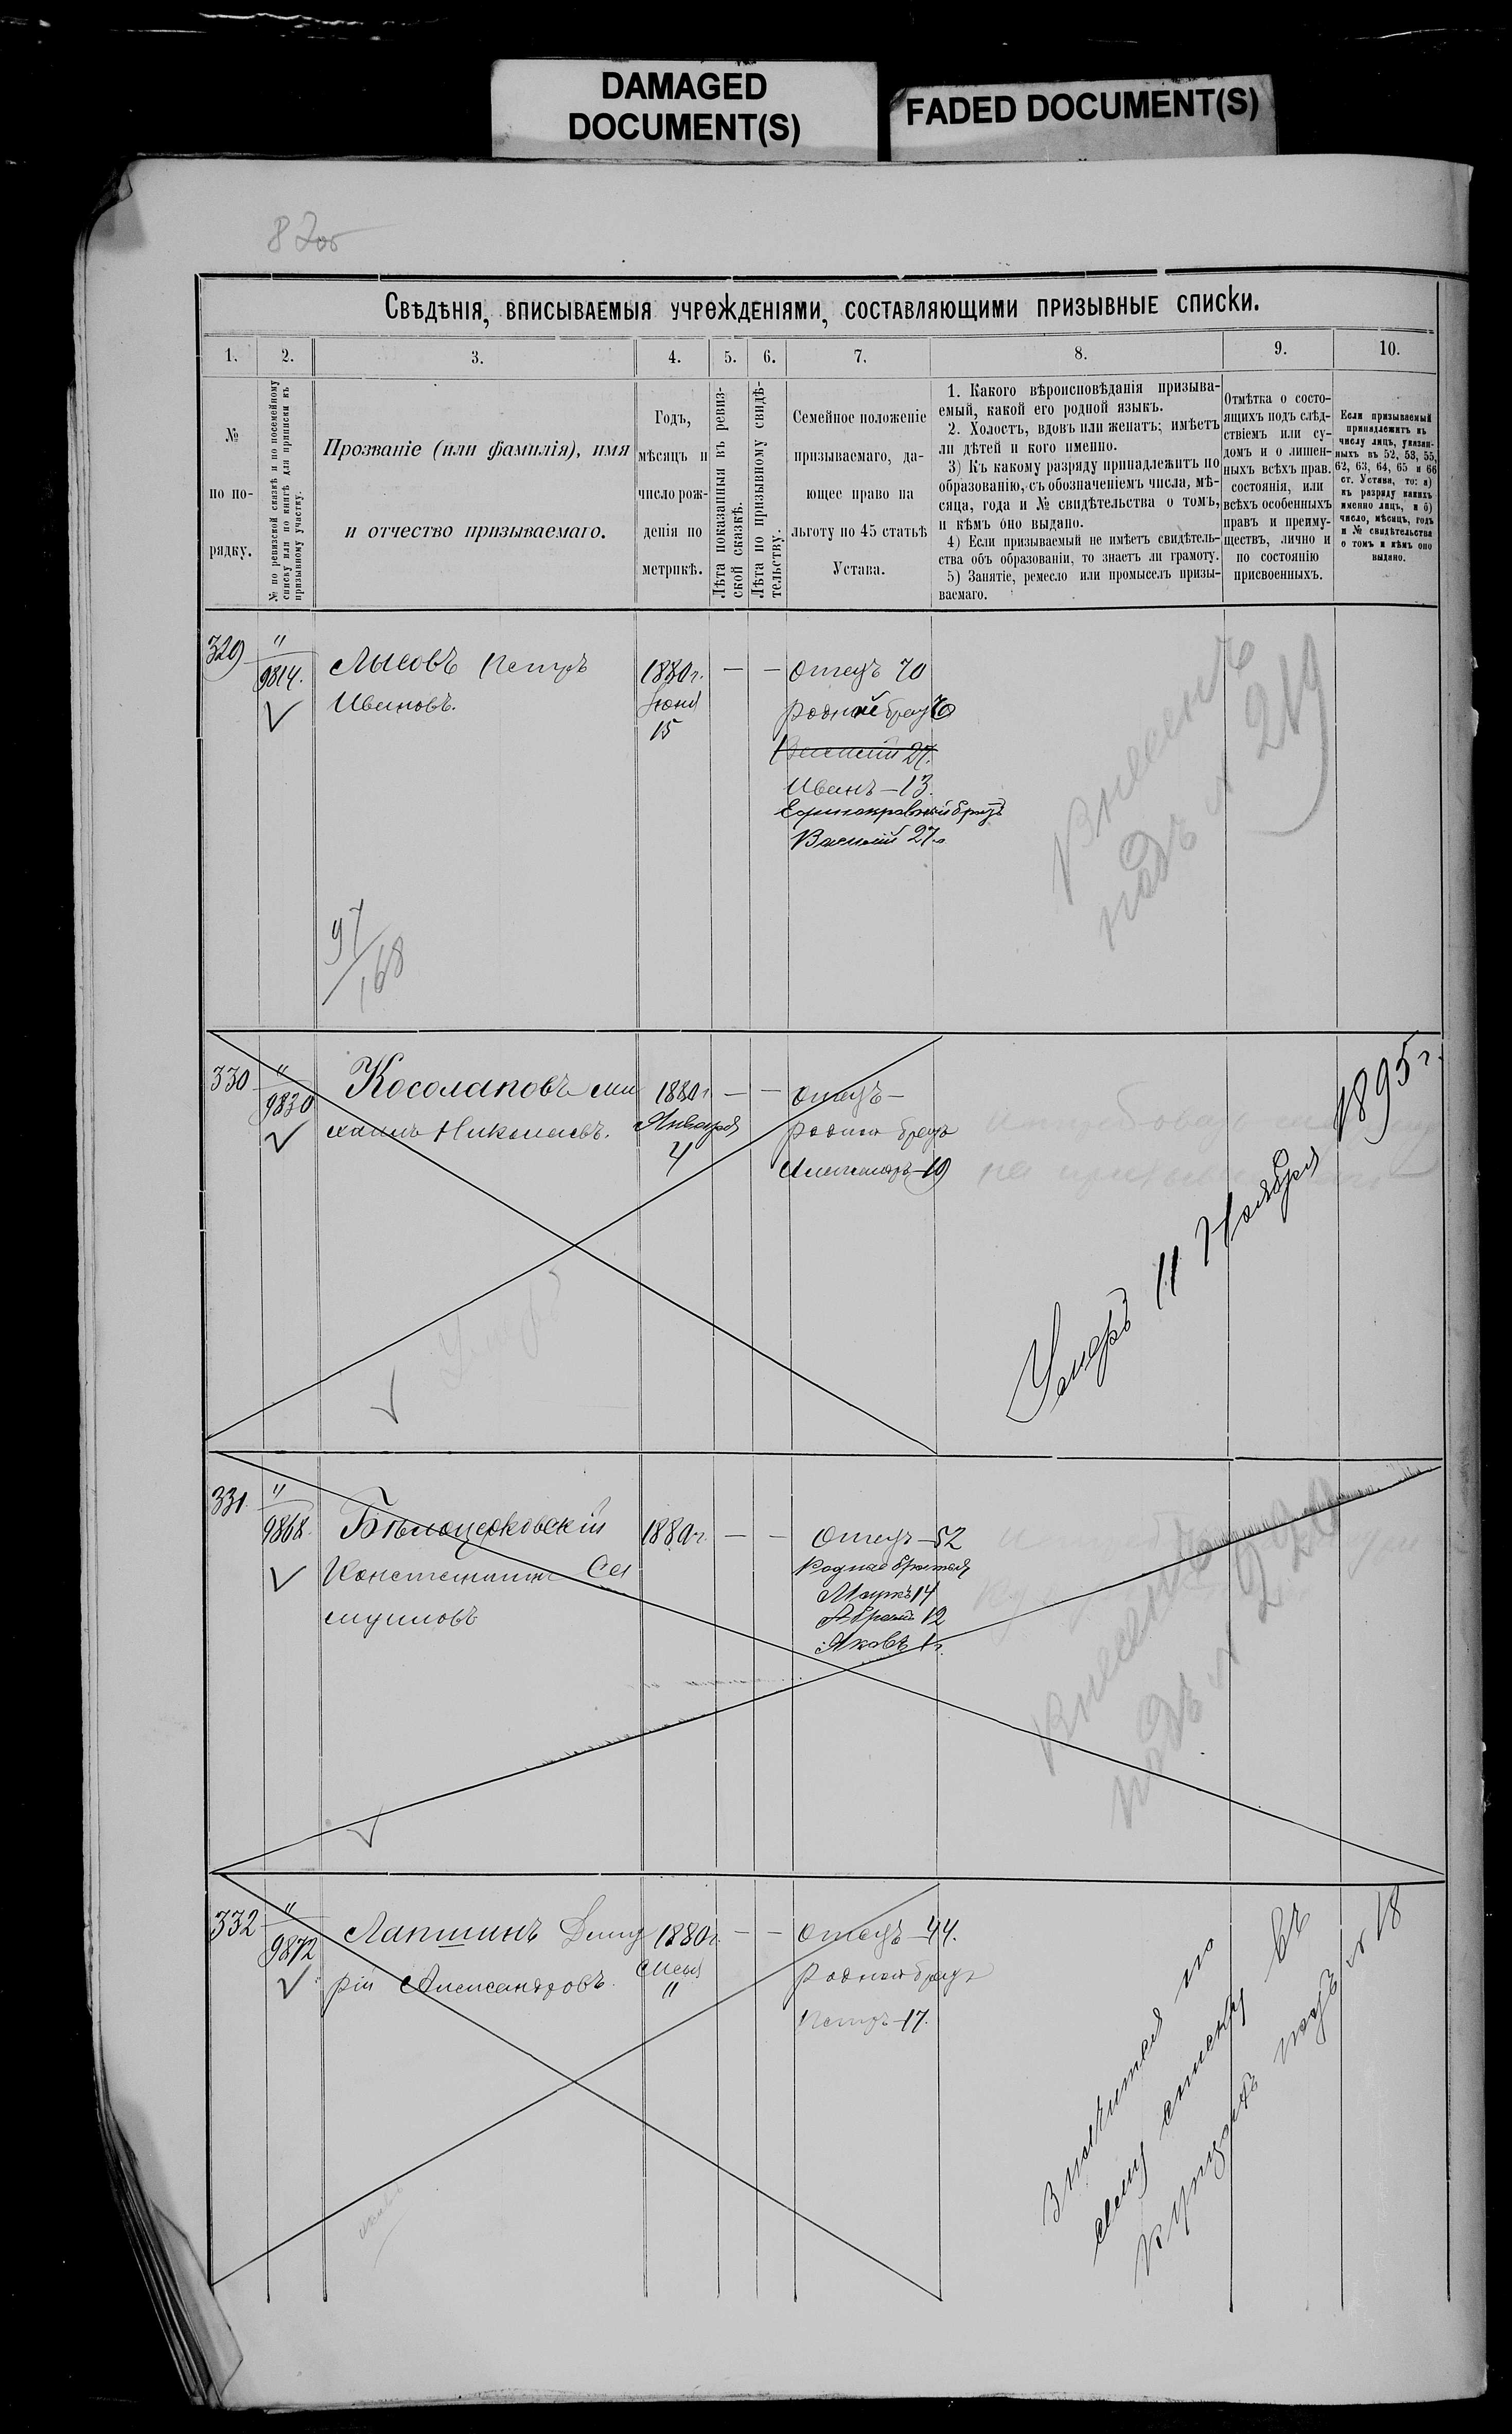 DAMAGED
DOCUMENT(S)
FADED DOCUMENT(S)
87об
Свѣдѣнія, вписываемыя учрежденіями, составляющими призывные списки.
1.
2.
3.
4.
5.
6.
7.
8.
9.
10.
№
по по-
рядку.
№ по ревизской сказкѣ и по посемейному
списку или по книгѣ для приписки къ
призывному участку.
Прозваніе (или фамилія), имя
и отчество призываемаго.
Годъ,
мѣсяцъ и
число рож-
денія по
метрикѣ.
Лѣта показанныя въ ревиз-
ской сказкѣ.
Лѣта по призывному свидѣ-
тельству.
Семейное положеніе
призываемаго, да-
ющее право на
льготу по 45 статьѣ
Устава.
1. Какого вѣроисповѣданія призыва-
емый, какой его родной языкъ.
2. Холостъ, вдовъ или женатъ; имѣетъ
ли дѣтей и кого именно.
3) Къ какому разряду принадлежитъ по
образованію, съ обозначеніемъ числа, мѣ-
сяца, года и № свидѣтельства о томъ,
и кѣмъ оно выдано.
4) Если призываемый не имѣетъ свидѣтель-
ства объ образованіи, то знаетъ ли грамоту.
5) Занятіе, ремесло или промыселъ призы-
ваемаго.
Отмѣтка о состо-
ящихъ подъ слѣд-
ствіемъ или су-
домъ и о лишен-
ныхъ всѣхъ прав.
состоянія, или
всѣхъ особенныхъ
правъ и преиму-
ществъ, лично и
по состоянію
присвоенныхъ.
Если призываемый
принадлежитъ къ
числу лицъ, указан-
ныхъ въ 52, 53, 55,
62, 63, 64, 65 и 66
ст. Устава, то: а)
къ разряду какихъ
именно лицъ, и б)
число, мѣсяцъ, годъ
и № свидѣтельства
о томъ и кѣмъ оно
выдано.
329
"
9814.
Лысовъ Петръ
Ивановъ.
1880 г.
Іюня
15
—
—
Отецъ 70
родной братъ
Василій 27.
Иванъ — 13.
Единокровный братъ
Василій 27.
Внесенъ
подъ № 219
97/168
330
"
9830
Косолаповъ Ми
хаилъ Николаевъ.
1880 г
Января
4
—
—
Отецъ —
родной братъ
Александръ — 19
Умеръ 11 Ноября 1895 г.
Умеръ
331.
"
9868.
Бѣлоцерковскій
Константинъ Са
муиловъ
1880 г.
—
—
Отецъ — 52
Родные братья
Маркъ 14
Абрамъ 12
Яковъ 1 г.
Внесенъ
подъ № 220
332
"
9872
Лапшинъ Дмит
рій Александровъ.
1880 г.
Мая
"
—
—
Отецъ — 44.
родной братъ
Петръ — 17.
Значится по
сему списку въ
купцахъ подъ № 18